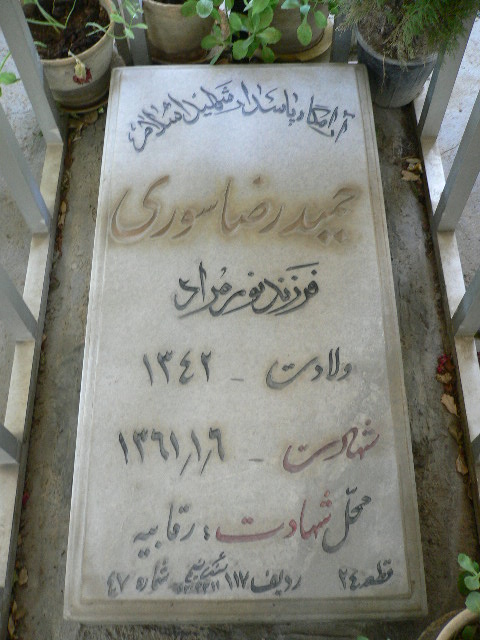 آرامگاه پاسدار شهید اسلام
حمید رضا سوری
فرزند نور مراد
ولادت - ۱۳۴۲
شهادت - ۱۳۶۱/۱/۶
محل شهادت : رقابیه
قطعه ۲۴ ردیف ۱۱۷ شماره ۴۷